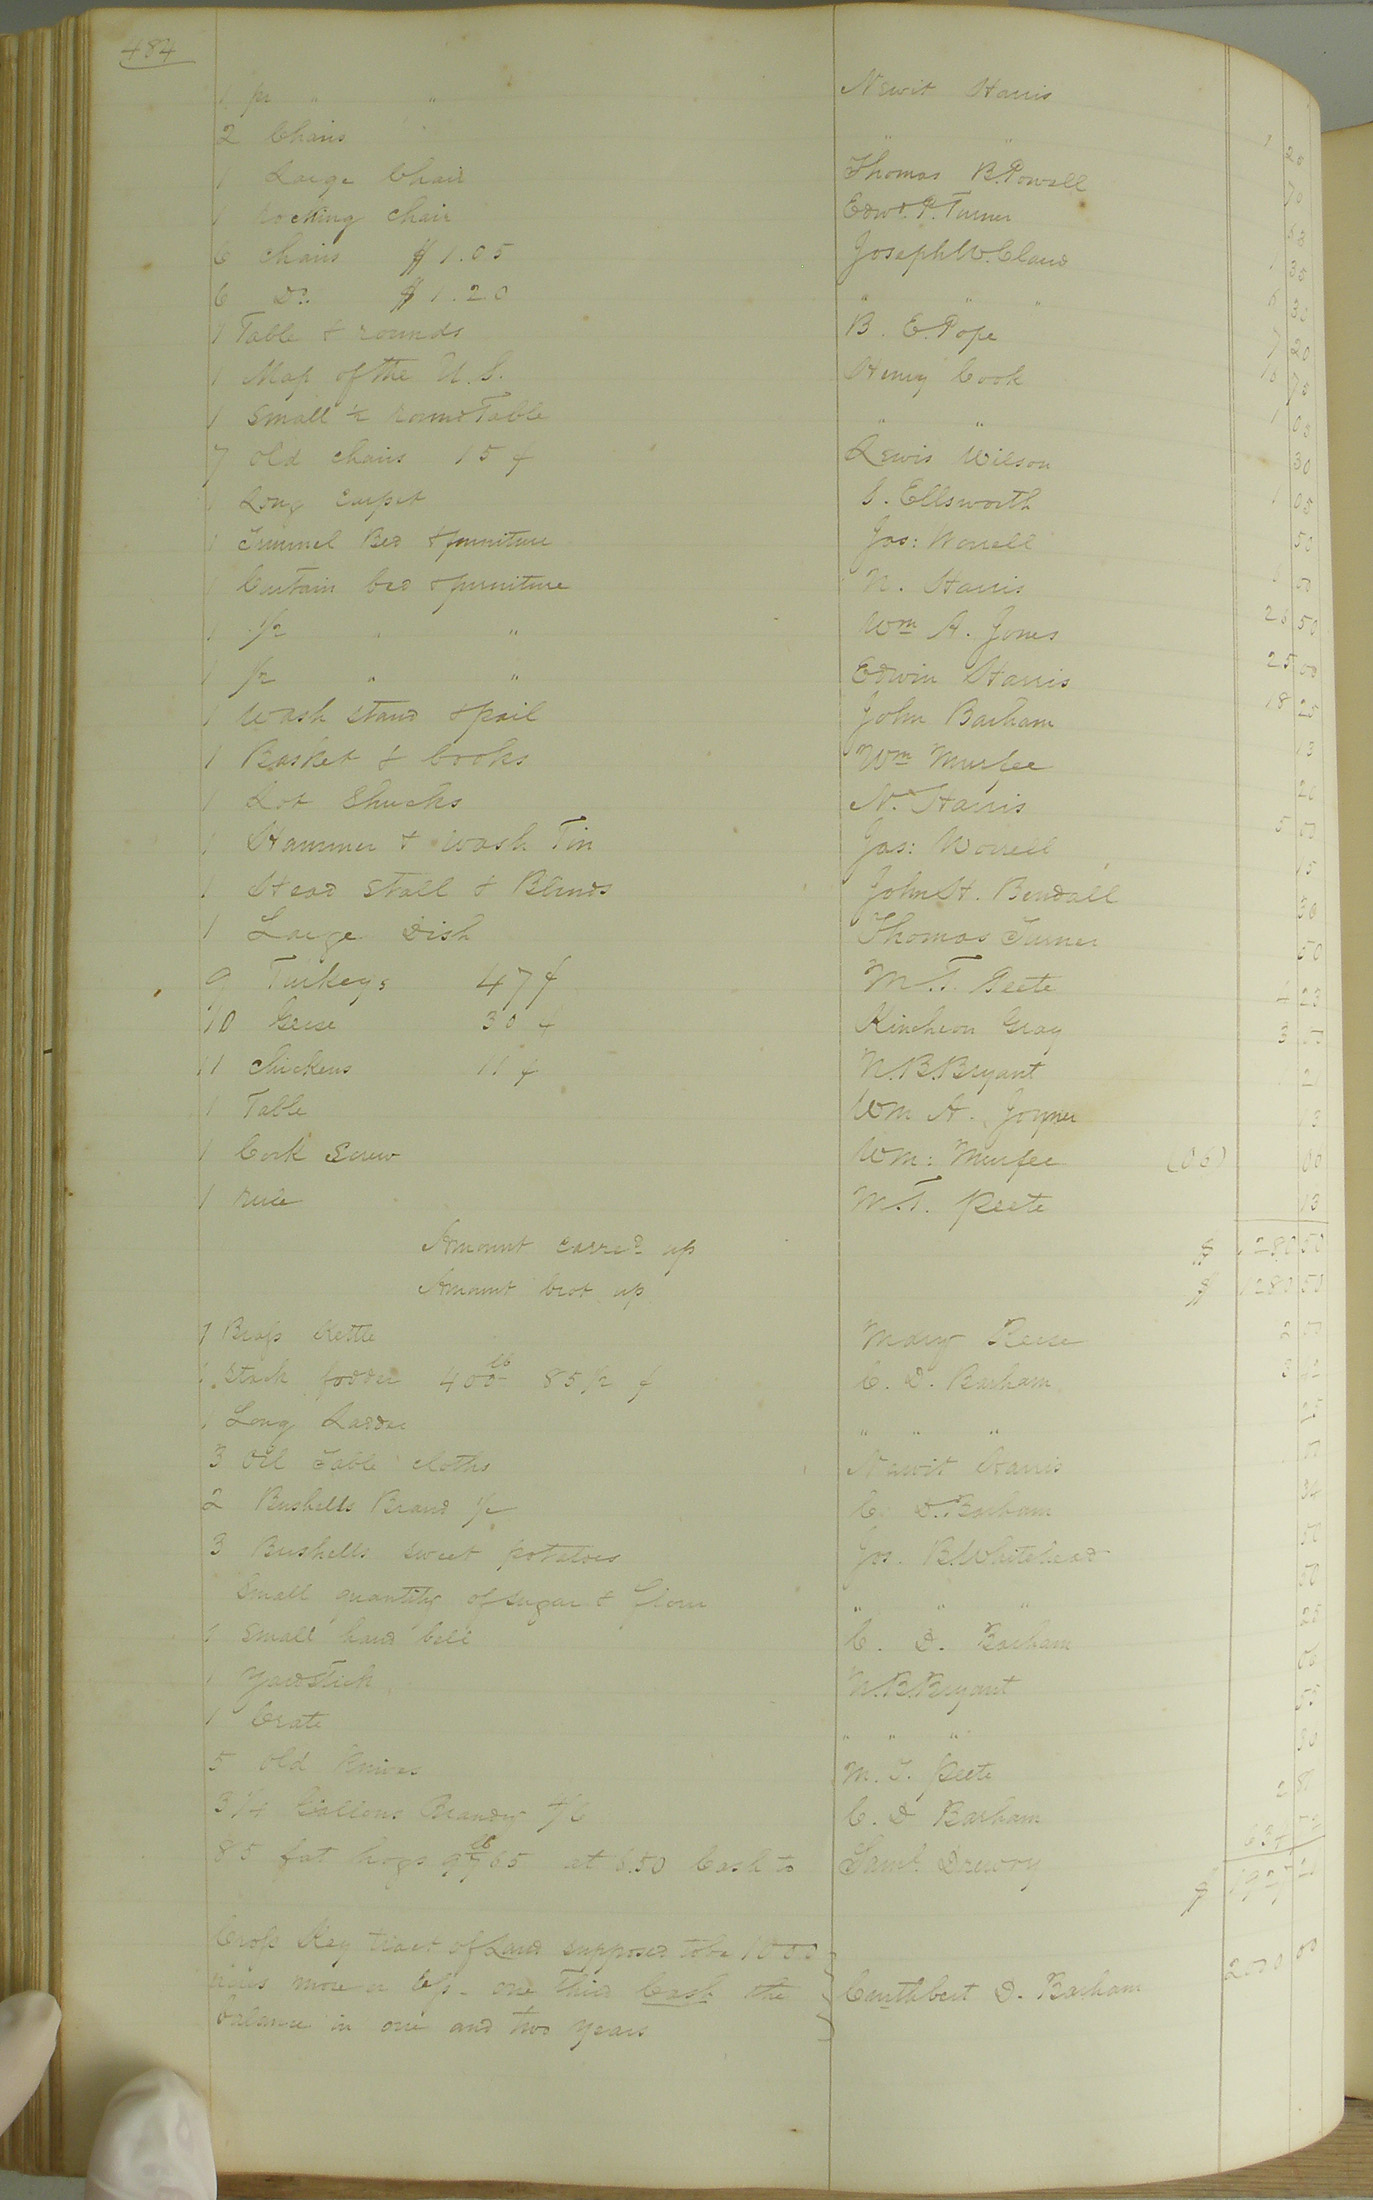 484
1 pr " " Newit Harris
2 Chairs " " 1 20
1 Large Chair Thomas B. Powell 70
1 rocking chair Edwd. P. Turner
6 chairs $1.05 Joseph W. Claud 6 30
6 Do. $1.20 " " " 7 20
1 Table & rounds B. E. Pope
1 Map of the U. S. Henry Cook
1 Small ½ round Table " " 30
7 old chairs 15 ¢ Lewis Wilson 1 05
1 Long carpet S. Ellsworth 50
1 Trunnel Bed & furniture Jas: Worrell 00
1 Curtain bed & furniture N. Harris 50
1 pr " " Wm A. Jones 25 00
1 pr " " Edwin Harris 18 25
1 Wash stand & pail John Barham 13
1 Basket & books Wm Murfee 20
1 Lot Shucks N. Harris 5 50
1 Hammer & wash Tin Jas: Worrell 15
1 Head stall & Blinds John H. Bendall 30
1 Large Dish Thomas Turner 50
9 Turkeys 47 ¢ M. T. Peete 4 23
10 Geese 30 ¢ Kincheon Gray 3 00
11 chickens 11 ¢ N. B. Bryant 1 21
1 Table Wm A. Joyner 13
1 Cork Screw Wm: Murfee (06) 00
1 rule M. T. Peete 13
Amount carred up $ 1280 50
Amount brot up $ 1280 50
1 Brass Kettle Mary Reese
1 stack fodder 400 lb 85 pr ¢ C. D. Barham 3
1 Long Ladder " " "
3 Oil Table cloths Newit Harris
2 Bushells Brand C. D. Barham
3 Bushells sweet potatoes Jos. B. Whitehead 50
Small quantity of sugar & flour " " " 50
1 small hand bell C. D. Barham 25
1 Yardstick N. B. Bryant 06
1 Crate " " " 55
5 old Knives M. T. Peete 30
3 ¼ Gallons Brandy C. D. Barham 2
85 fat hogs 9765 lb at 6.50 Cash to Saml. Drewry 634
$ 1927
Cross Key tract of Land supposed to be 1000
acres more or less - one third Cash the Cuthbert D. Barham 2000 00
balance in one and two years